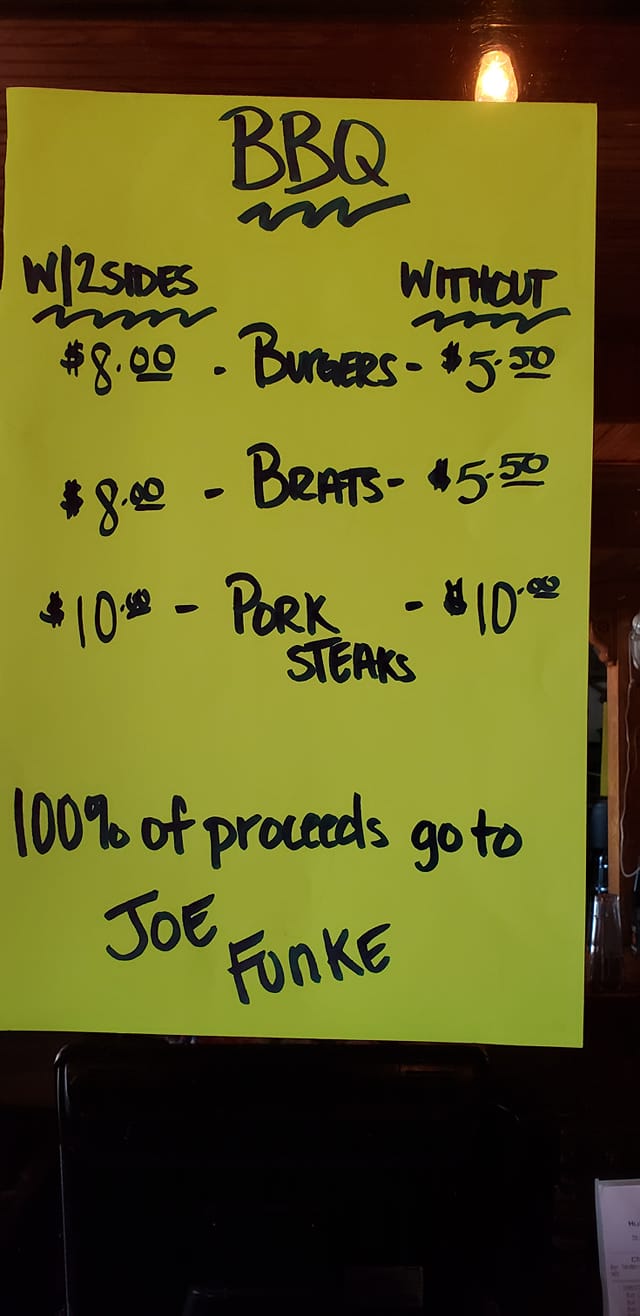 BBQ
W/2 SIDES WITHOUT
$8.00 - BURGERS - $5.50
$8.00 - BRATS - $5.50
$10.00 - PORK - $10.00
STEAKS
100% of proceeds go to
JOE
FUNKE